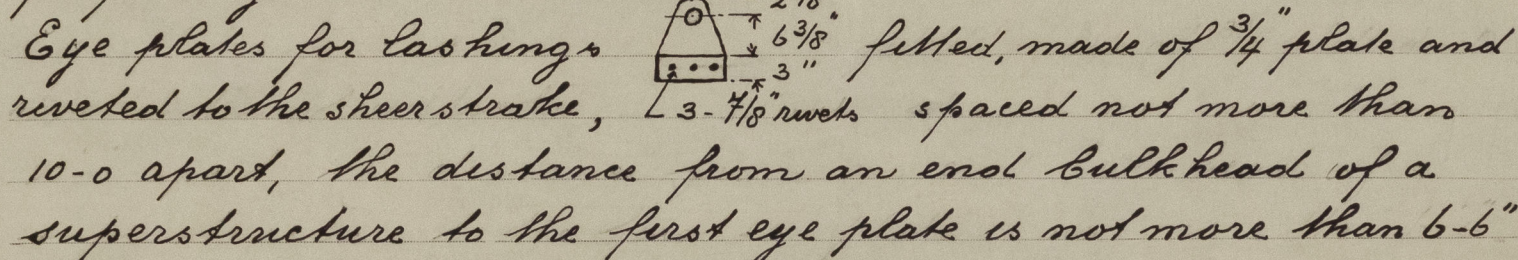 Eye plates for lashings 6 3/8" fitted, made of 3/4" plate and
3"
riveted to the sheerstrake, 3 - 7/8" rivets spaced not more than
10-0 apart, the distance from an end bulkhead of a
superstructure to the first eye plate is not more than 6-6"